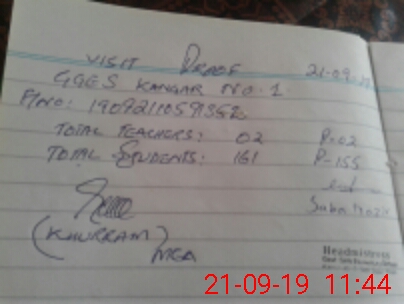 VISIT PROOF 21-09-19
GGES KANGAR NO.1
TOTAL TEACHERS: 02 P-02
TOTAL STUDENTS: 161 P-155
Saba Nazir
(KHURRAM)
MEA
Headmistress
21-09-19 11:44